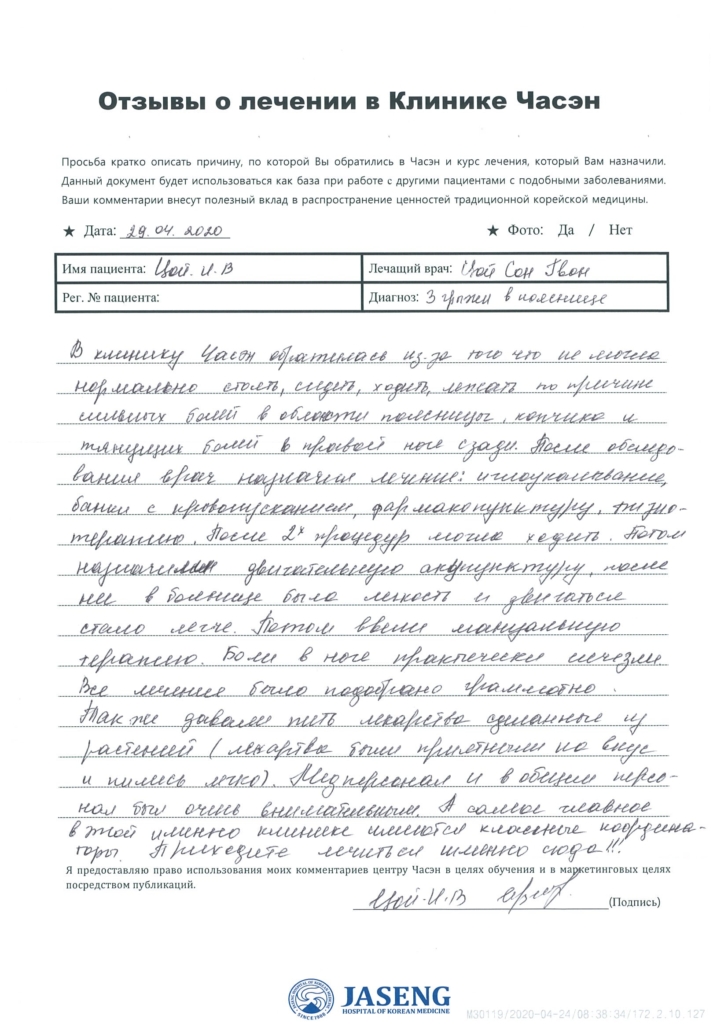 Отзывы о лечении в Клинике Часэн
Просьба кратко описать причину, по которой Вы обратились в Часэн и курс лечения, который Вам назначили.
Данный документ будет использоваться как база при работе с другими пациентами с подобными заболеваниями.
Ваши комментарии внесут полезный вклад в распространение ценностей традиционной корейской медицины.
★ Дата: 29.04.2020 ★ Фото: Да / Нет
Имя пациента: Цой. И. В Лечащий врач: Цой Сон Гвон
Рег. № пациента: Диагноз: 3 грыжи в пояснице
В клинику Часэн обратилась из-за того что не могла
нормально стоять, сидеть, ходить, лежать по причине
сильных болей в области поясницы, копчика и
тянущих болей в правой ноге сзади. После обследо-
вания врач назначил лечение: иглоукалывание,
банки с кровопусканием, фармакопунктуру, физио-
терапию. После 2х процедур могла ходить. Потом
назначили двигательную акупунктуру, после
нее в пояснице была легкость и двигаться
стало легче. Потом ввели мануальную
терапию. Боли в ноге практически исчезли.
Все лечение было подобрано грамотно.
Так же давали пить лекарства сделанные из
растений (лекарства были приятными на вкус
и пились легко). Медперсонал и в общем персо-
нал был очень внимательным. А самое главное
в этой именно клинике имеются классные координа-
торы. Приходите лечиться именно сюда!!!
Я предоставляю право использования моих комментариев центру Часэн в целях обучения и в маркетинговых целях
посредством публикаций.
Цой-И.В (Подпись)
JASENG
HOSPITAL OF KOREAN MEDICINE
M30119/2020-04-24/08:38:34/172.2.10.127